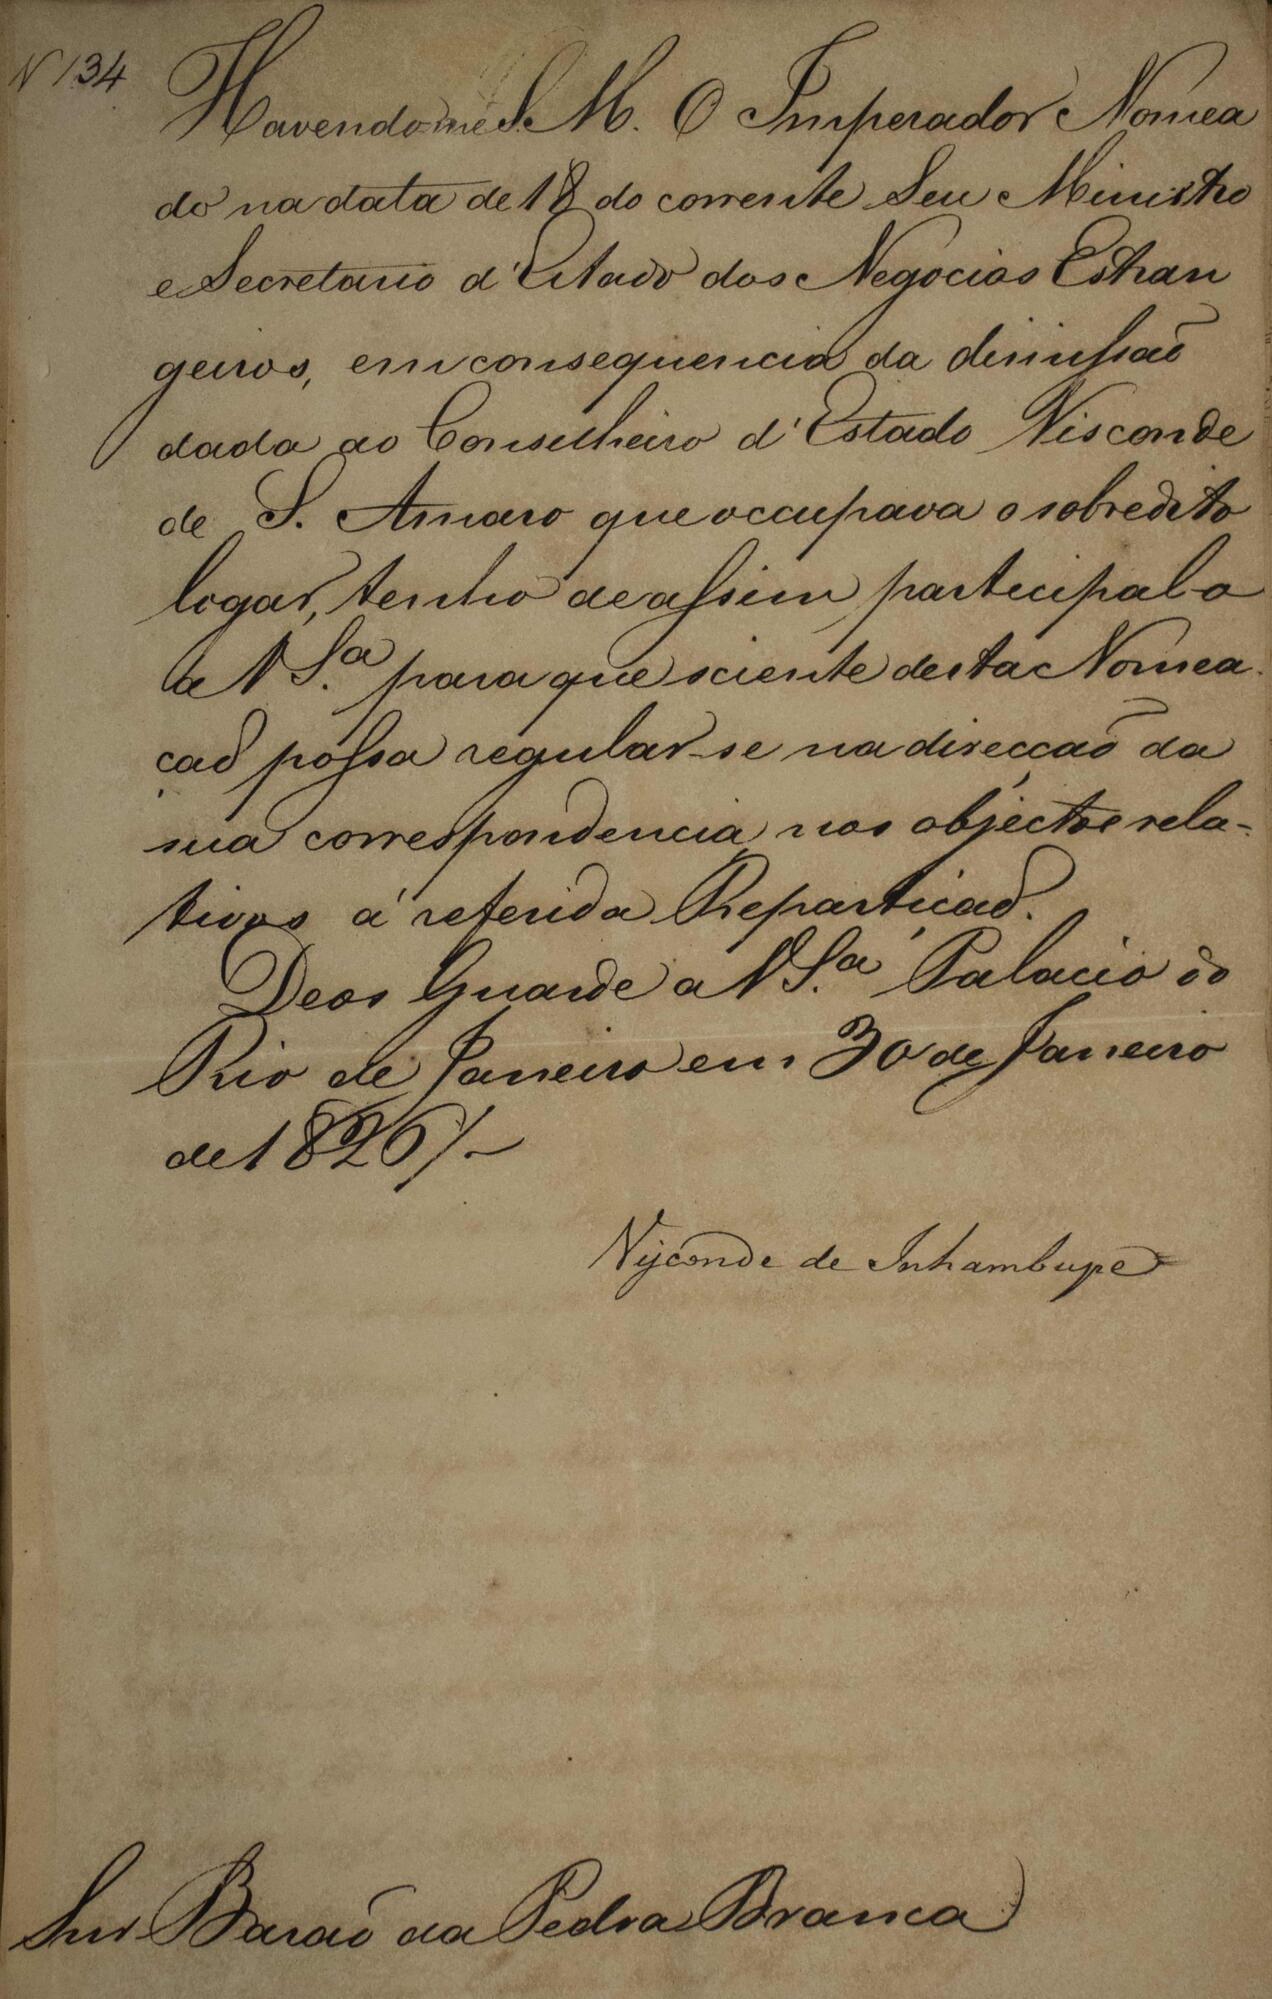 N 134
Havendo-me S. M. O Imperador Nomea
do na data de 18 do corrente Seu Ministro
e Secretario d'Estado dos Negocios Estran
geiros, em consequencia da dimissaõ
dada ao Conselheiro d'Estado Visconde
de S. Amaro que occupava o sobredito
logar, tenho de assim participal-o
a V S.ª para que sciente desta Nomea-
çaõ possa regular-se na direcçaõ da
sua correspondencia nos objectos rela-
tivos á referida Repartiçaõ.
Deos Guarde a V S.ª Palacio do
Rio de Janeiro em 30 de Janeiro
de 1826/-
Visconde de Inhambupe
Snr Baraõ da Pedra Branca